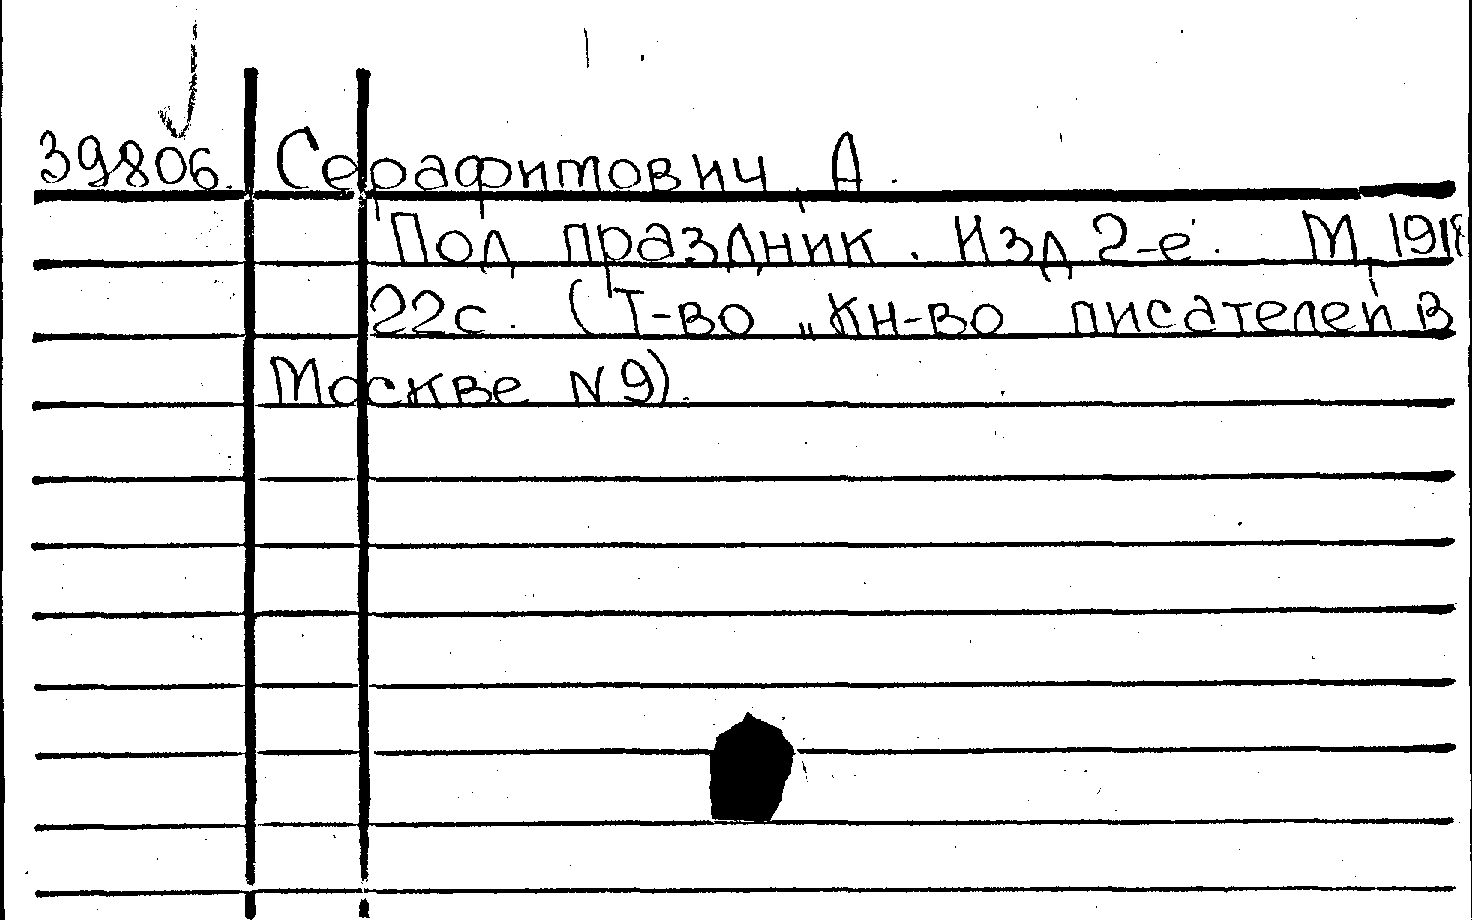 39806. Серафимович, А.
Под праздник. Изд 2-е. М, 1918
22с. (Т-во „Кн-во писателей в
Москве N9).